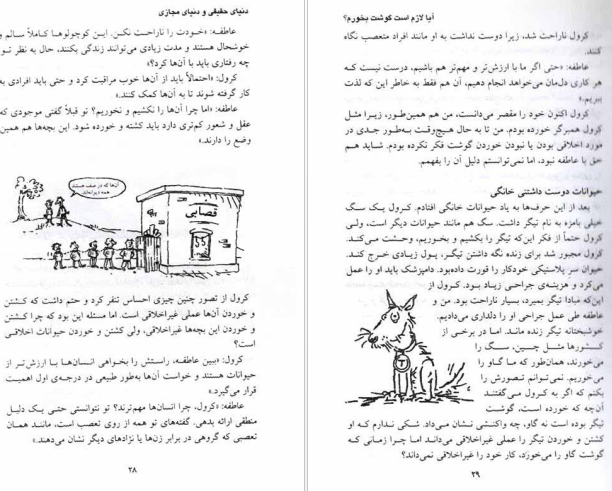 دنیای حقیقی و دنیای مجازی
عاطفه: «خودت را ناراحت نکن. این کوچولوها کاملاً سالم و
خوشحال هستند و مدت زیادی می‌توانند زندگی بکنند، حال به نظر تو
چه رفتاری باید با آن‌ها کرد؟»
کرول: «احتمالاً باید از آن‌ها خوب مراقبت کرد و حتی باید افرادی به
کار گرفته شوند تا به آن‌ها کمک کنند.»
عاطفه: «اما چرا آن‌ها را نکشیم و نخوریم؟ تو قبلاً گفتی موجودی که
عقل و شعور کم‌تری دارد باید کشته و خورده شود. این بچه‌ها هم همین
وضع را دارند.»
آن‌ها که در صف هستند
همه دیوانه‌اند.
قصابی
کرول از تصور چنین چیزی احساس تنفر کرد و حتم داشت که کشتن
و خوردن آن‌ها عملی غیراخلاقی است. اما مسئله این بود که چرا کشتن
و خوردن این بچه‌ها غیراخلاقی، ولی کشتن و خوردن حیوانات اخلاقی
است؟
کرول: «ببین عاطفه، راستش را بخواهی انسان‌ها با ارزش‌تر از
حیوانات هستند و خواست آن‌ها به‌طور طبیعی در درجه‌ی اول اهمیت
قرار می‌گیرد.»
عاطفه: «کرول، چرا انسان‌ها مهم‌ترند؟ تو نتوانستی حتی یک دلیل
منطقی ارائه بدهی. گفته‌های تو همه از روی تعصب است، مانند همان
تعصبی که گروهی در برابر زن‌ها یا نژادهای دیگر نشان می‌دهند.»
۲۸
آیا لازم است گوشت بخورم؟
کرول ناراحت شد، زیرا دوست نداشت به او مانند افراد متعصب نگاه
کنند.
عاطفه: «حتی اگر ما با ارزش‌تر و مهم‌تر هم باشیم، درست نیست که
هر کاری دل‌مان می‌خواهد انجام دهیم، آن هم فقط به خاطر این که لذت
ببریم.»
کرول اکنون خود را مقصر می‌دانست، من هم همین‌طور، زیرا مثل
کرول همبرگر خورده بودم. من تا به حال هیچ‌وقت به‌طور جدی در
مورد اخلاقی بودن یا نبودن خوردن گوشت فکر نکرده بودم. شاید هم
حق با عاطفه نبود، اما نمی‌توانستم دلیل آن را بفهمم.
حیوانات دوست داشتنی خانگی
بعد از این حرف‌ها به یاد حیوانات خانگی افتادم. کرول یک سگ
خیلی بامزه به نام تیگر داشت. سگ هم مانند حیوانات دیگر است، ولی
کرول حتماً از فکر این‌که تیگر را بکشیم و بخوریم، وحشت می‌کند.
کرول مجبور شد برای زنده نگه داشتن تیگر، پول زیادی خرج کند.
حیوان سر پلاستیکی خودکار را قورت داده‌بود. دامپزشک باید او را عمل
می‌کرد و هزینه‌ی جراحی زیاد بود. کرول از
این‌که مبادا تیگر بمیرد، بسیار ناراحت بود. من و
عاطفه طی عمل جراحی او را دلداری می‌دادیم.
خوشبختانه تیگر زنده ماند. اما در برخی از
کشورها مثل چین، سگ را
می‌خورند، همان‌طور که ما گاو را
می‌خوریم. نمی‌توانم تصورش را
بکنم که اگر به کرول می‌گفتند
آن‌چه که خورده است، گوشت
تیگر بوده است نه گاو، چه واکنشی نشان می‌داد. شکی ندارم که او
کشتن و خوردن تیگر را عملی غیراخلاقی می‌داند اما چرا زمانی که
گوشت گاو را می‌خورَد، کار خود را غیراخلاقی نمی‌داند؟
T
۲۹